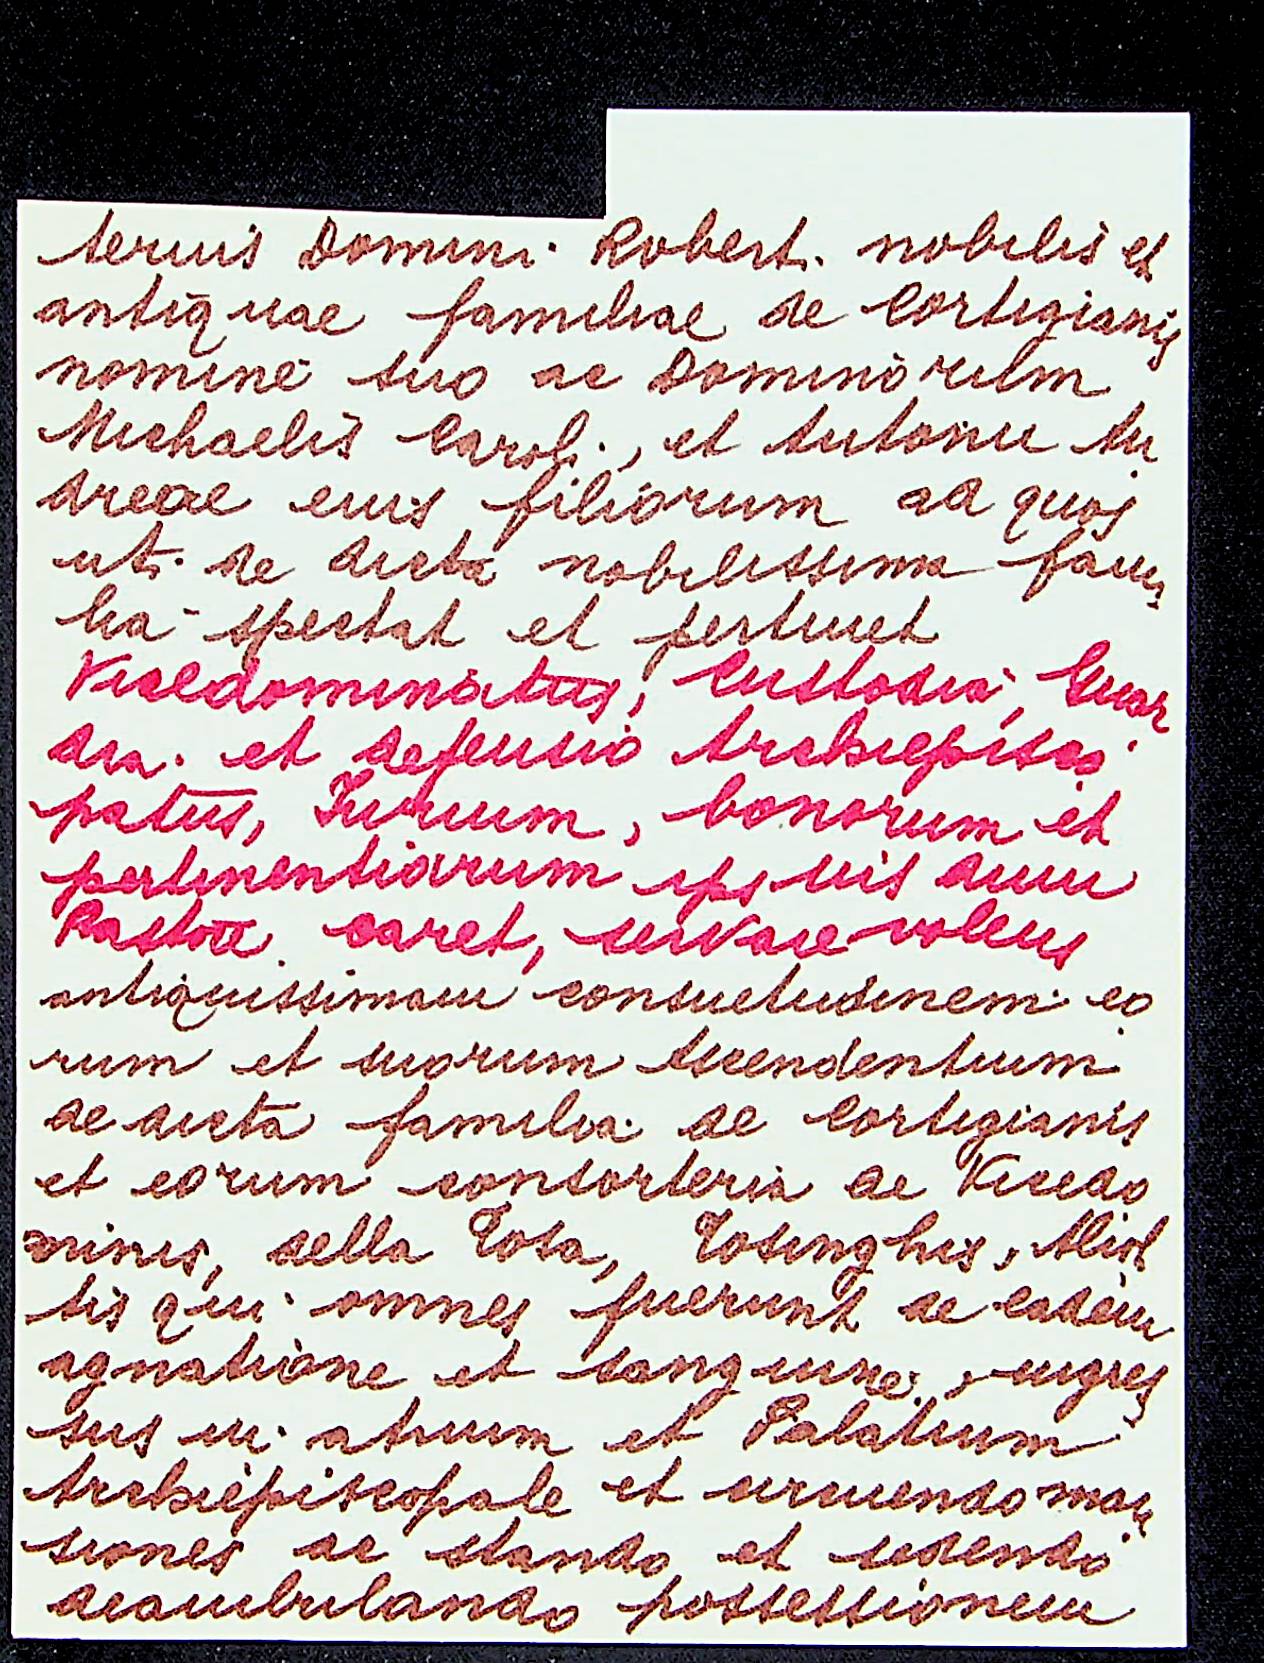 seruis Domini Robert. nobilis et
antiquae familiae de Cortigianis
nomine suo ac Dominorum
Michaelis Carol., et Antonii An
dreae eius filiorum ad quos
uti de dicta nobilissima fami
lia spectat et pertinet
Vicedominatus, Custodia, Guar
dia et defensio Archiepisco
patus, Iurium, bonorum et
pertinentiarum ipsius dum
Pastore caret, servare volens
antiquissimam consuetudinem eo
rum et suorum Ascendentium
de dicta familia de Cortigianis
et eorum consorteria de Vicedo
minis, della Tosa, Tosinghis, Aliot
tis qui omnes fuerunt de eadem
agnatione et sanguine, ingres
sus in atrium et Palatium
Archiepiscopale et circuendo man
siones ac stando et sedendo
deambulando possessionem